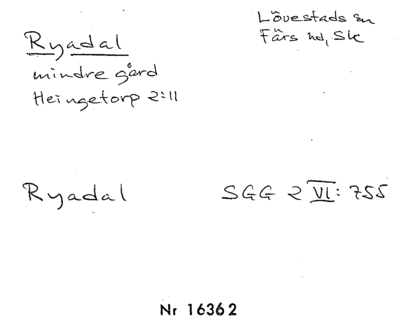 Ryadal
mindre gård
Heingetorp 2:11
Lövestads sn
Färs hd, Sk
Ryadal
SGG 2 VI: 755
Nr 16362